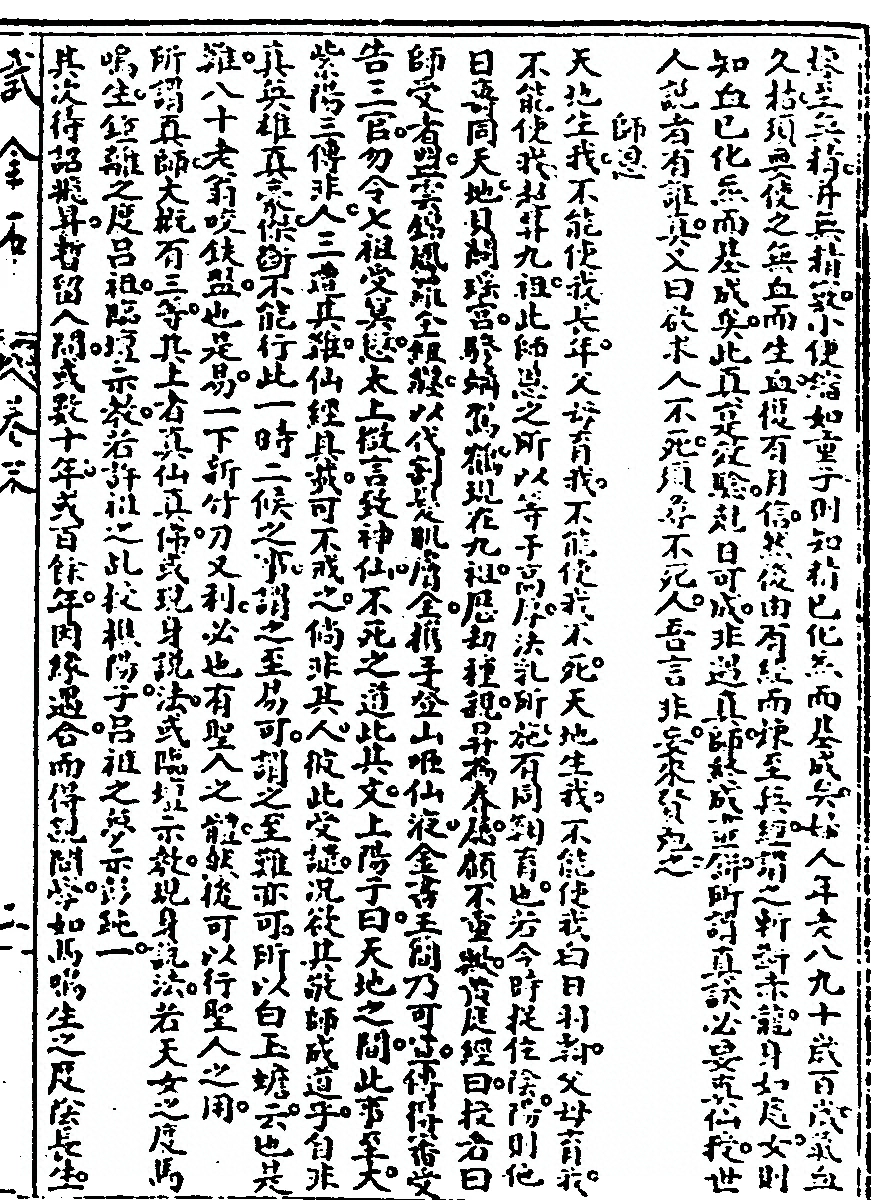 採至無精并無精竅小便縮如童子則知精已化炁而基成矣婦人年老八九十歲百歲氣血
久枯須要使之無血而生血復有月信然後由有經而煉至無經謂之斬斷赤龍身如處女則
知血已化炁而基成矣此真訣效驗尅日可成非遇真師終成畫餅所謂真訣必要真仙授世
人說者有誰真又曰欲求人不死須尋不死人吾言非妄來賢勉之
師恩
天地生我不能使我長年父母育我不能使我不死天地生我不能使我白日羽翰父母育我
不能使我超昇九祖此師恩之所以等于高厚法乳所施有同鞠育也若今時捉住陰陽則他
日壽同天地貝闕瑤宮驂螭駕鶴現在九祖歷劫種親昇福春顧不重歟黃庭經曰授者曰
師受者盟雲錦鳳羅金鈕纏以代割髮肌膚全攜手登山歃仙液金書玉簡乃可宣傳得審受
告三官勿令七祖受冥愆太上微言致神仙不死之道此其文上陽子曰天地之間此事至大
紫陽三傳非人三遭其難仙經具載可不戒之倘非其人彼此受譴況欲其敬師成道乎自非
真英雄真豪傑斷不能行此一時二候之事謂之至易可謂之至難亦可所以白玉蟾云也是
難八十老翁咬鐵盤也是易一下新竹刀又利必也有聖人之體然後可以行聖人之用
所謂真師大概有三等其上者真仙真佛或現身說法或臨壇示教現身說法若天女之度馬
鳴生鍾離之度呂祖臨壇示教若許祖之乩授樵陽子呂祖之夢示彭純一
其次待詔飛昇暫留人間或數十年或百餘年因緣遇合而得親問學如馬鳴生之度陰長生